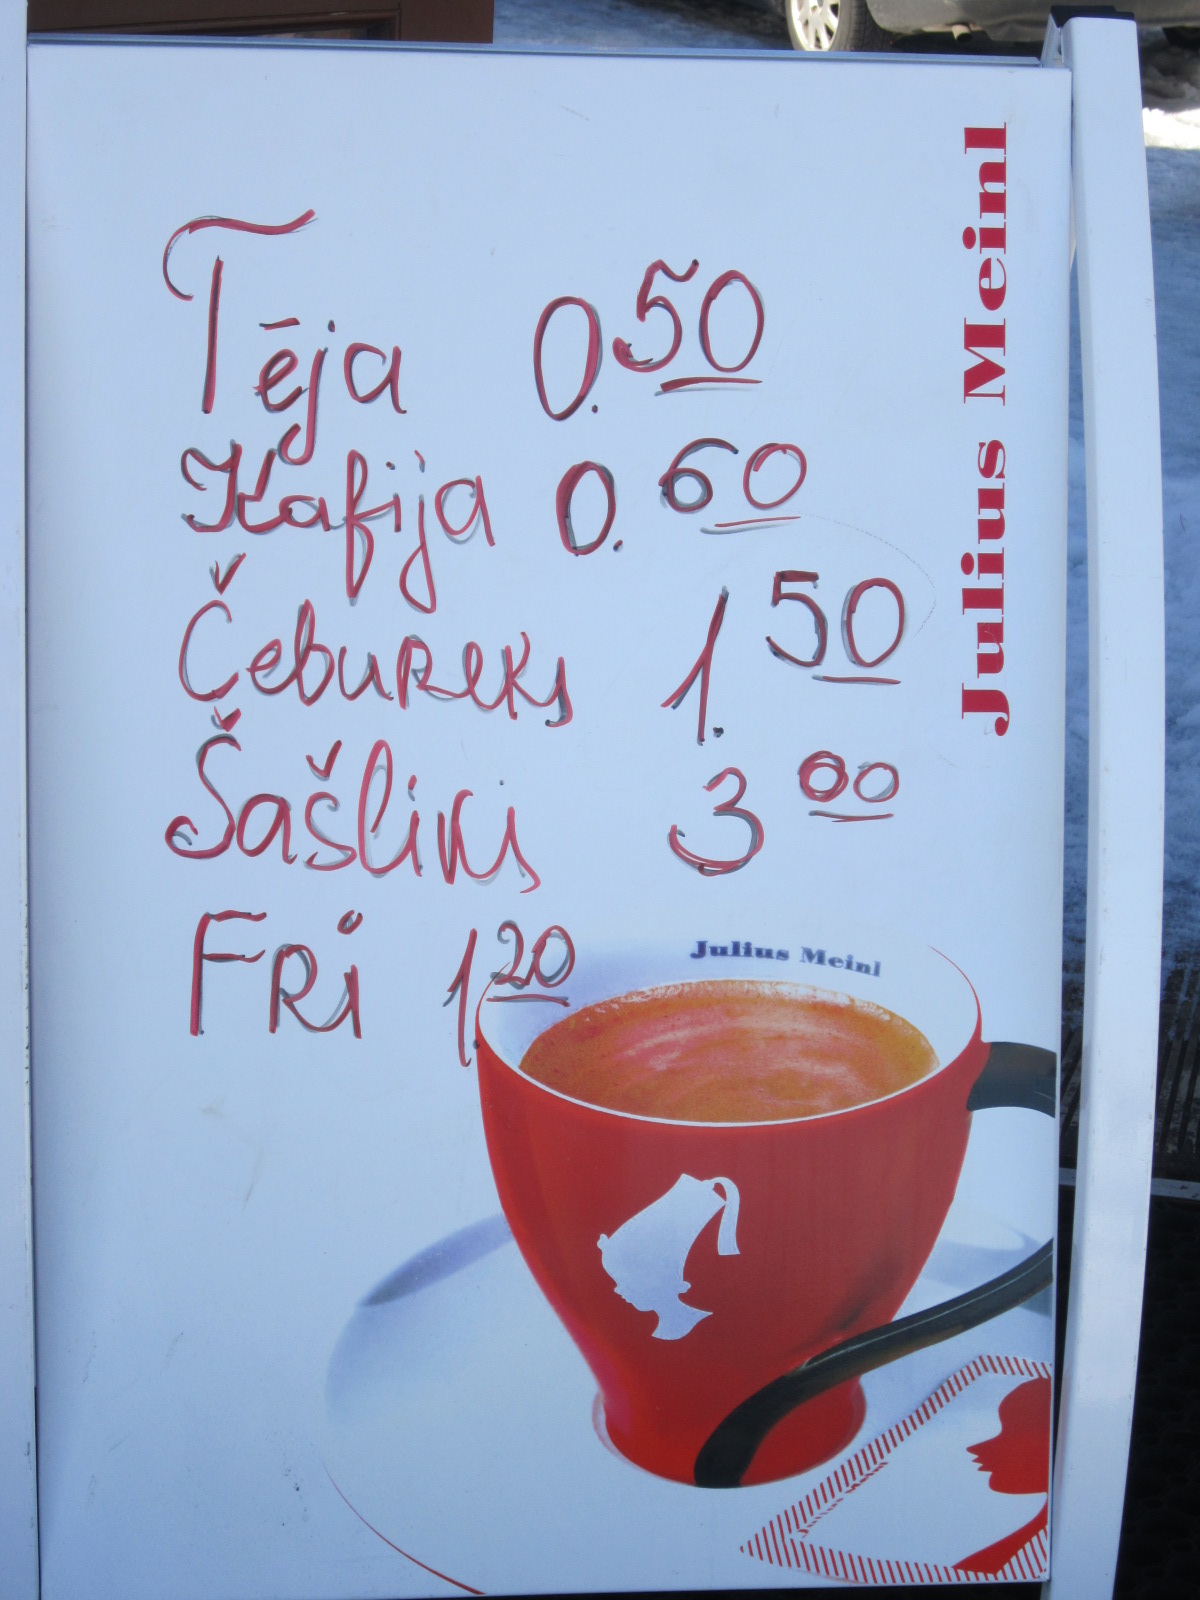 Tēja 0.50
Kafija 0.60
Čebureks 1.50
Šašliks 3 00
FRi 1.20
Julius Meinl
Julius Meinl